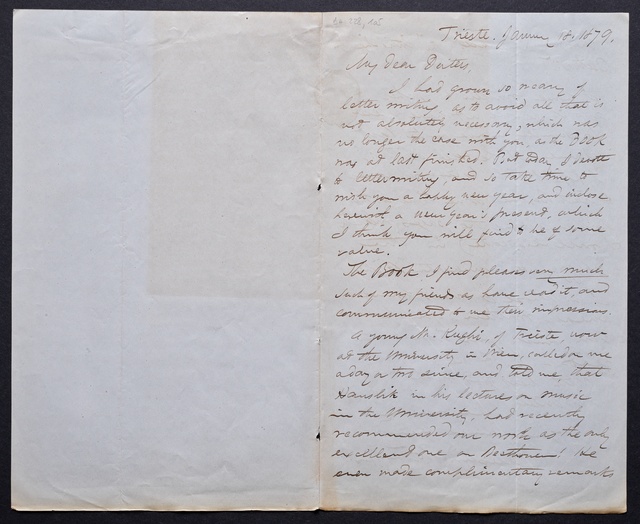 Trieste. January 18. 1879.
My dear Deiters,
I had grown so weary of
letter writing as to avoid all that is
not absolutely necessary, which was
no longer the case with you, as the Book
was at last finished. But today I devote
to letter writing, and so take time to
wish you a happy new year, and inclose
herewith a new year's present, which
I think you will find to be of some
value.
The Book I find pleases very much
such of my friends as have read it, and
communicated to me their impressions.
A young Mr. of Trieste now
at the University in Wien, called on me
a day or two since, and told me, that
Hanslik in his lectures on music
in the University, had recently
recommended our work as the only
excellent one on Beethoven! He
even made complimentary remarks